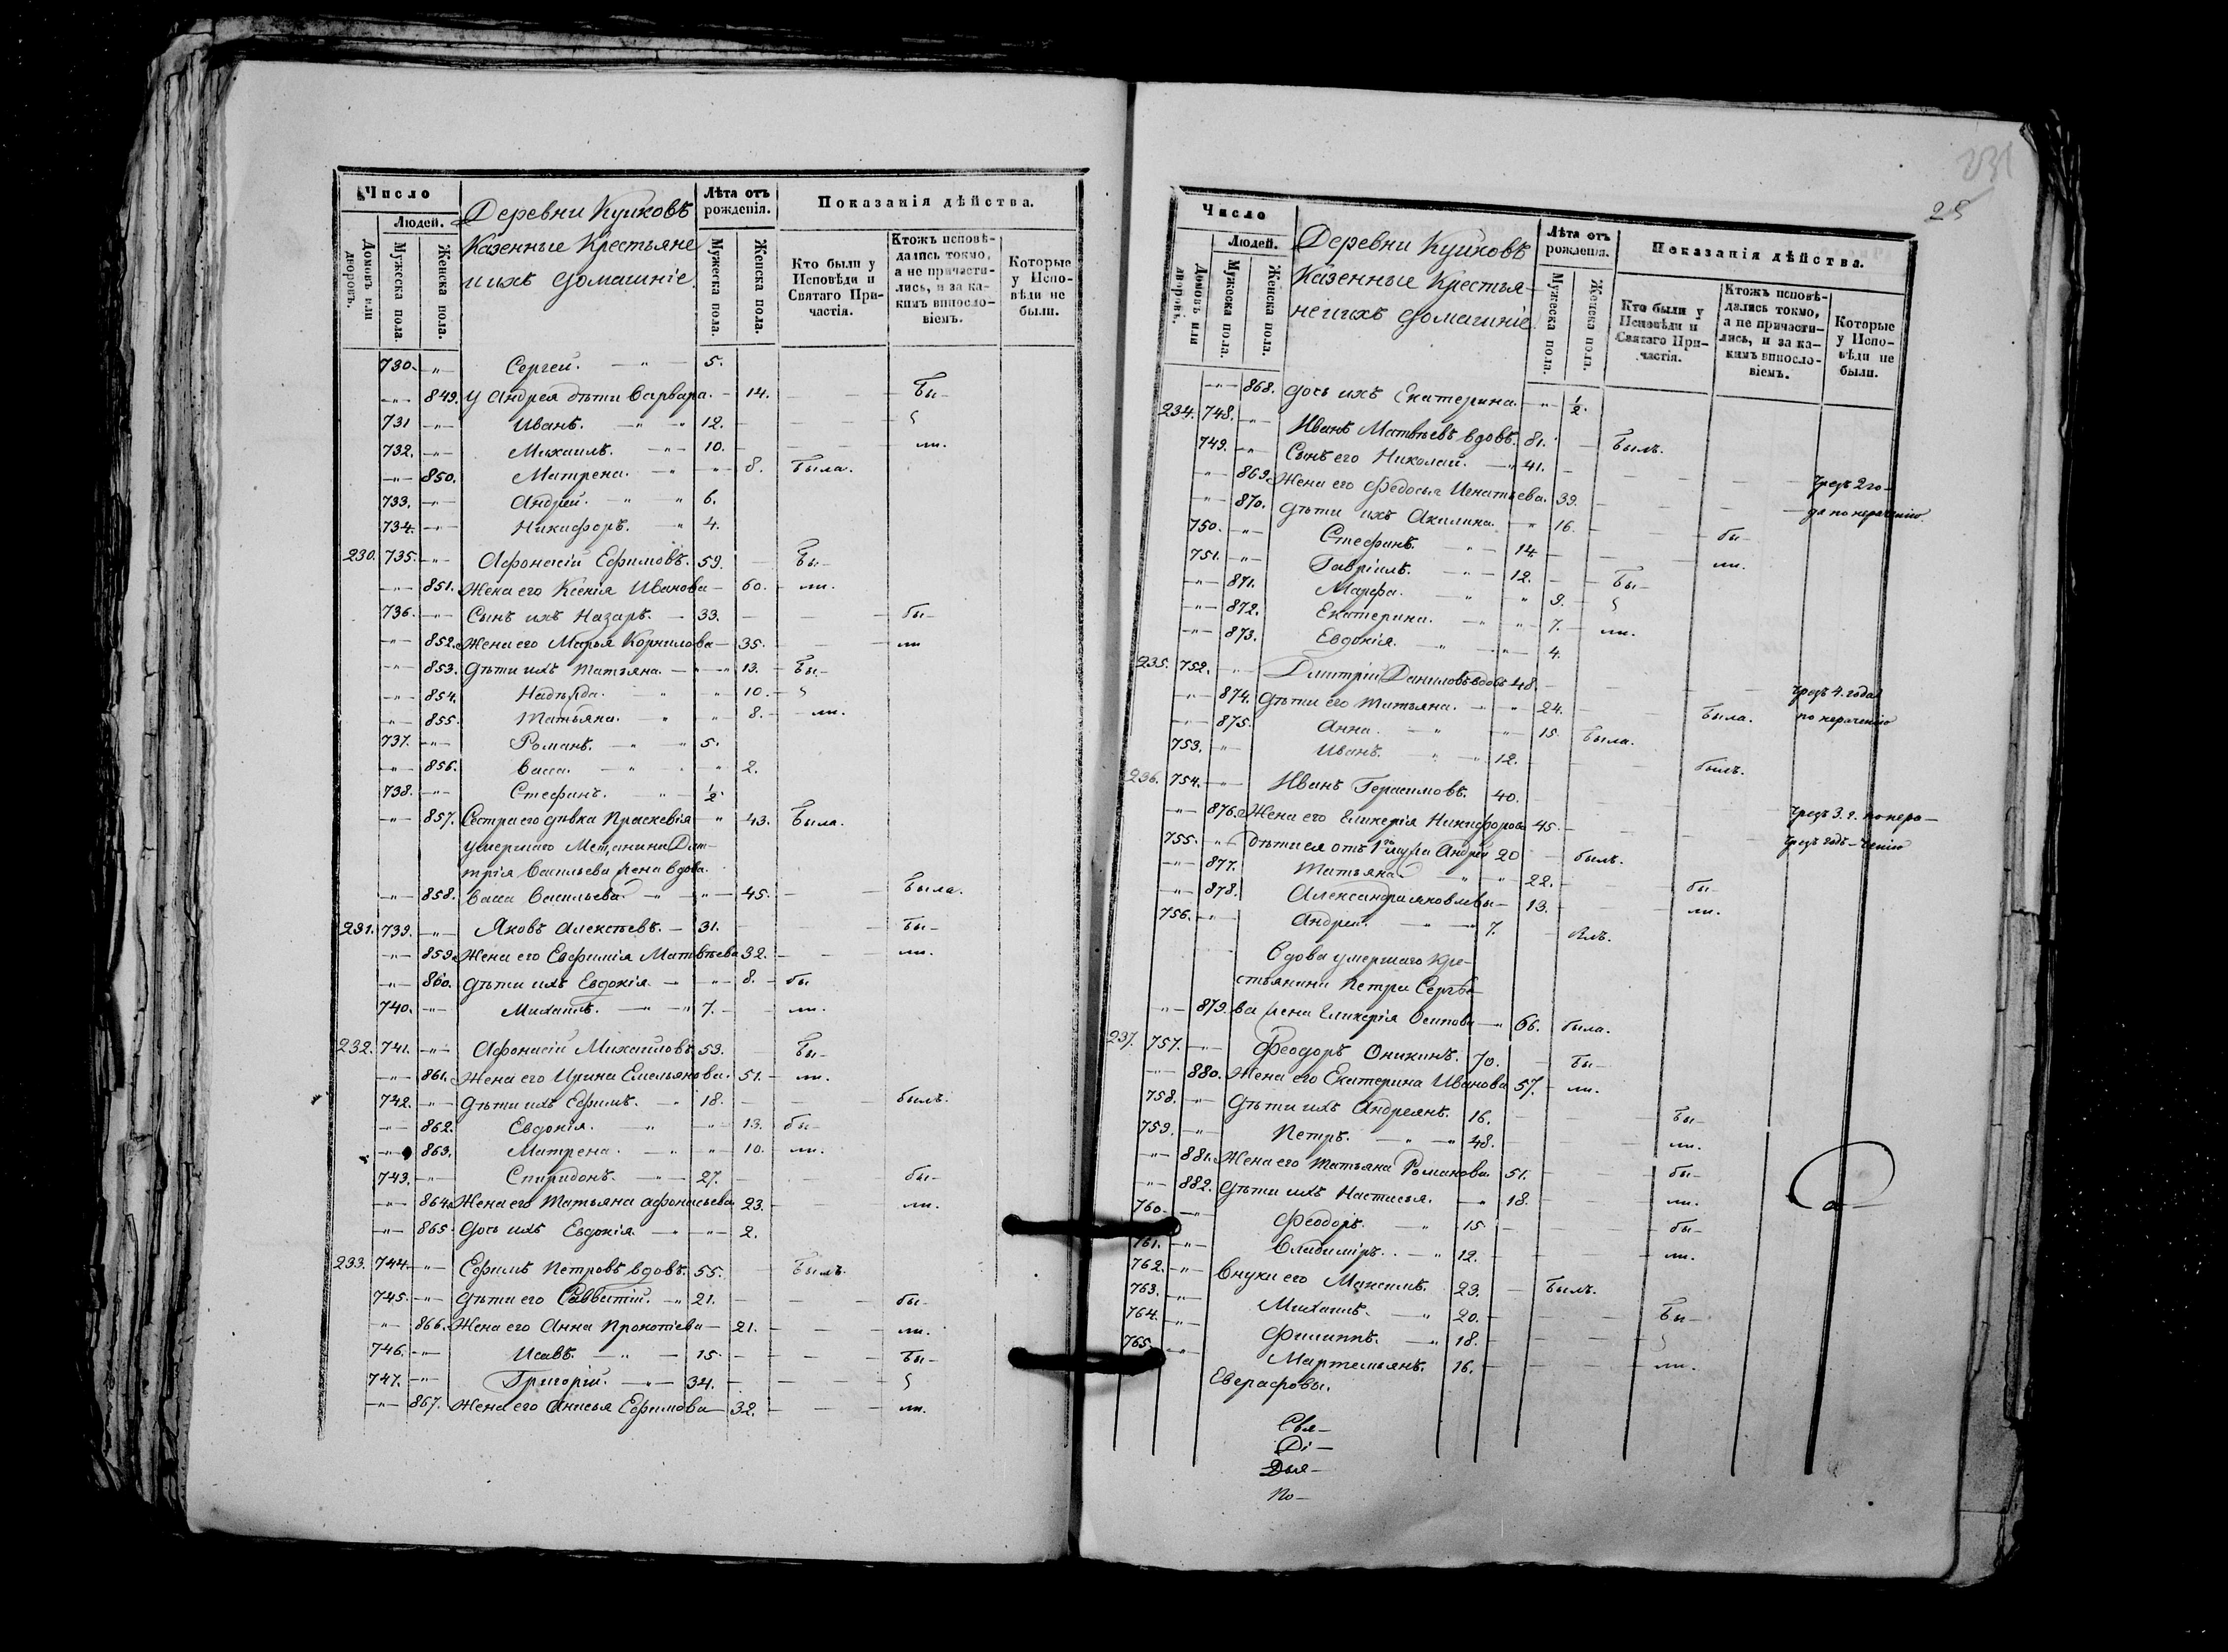 Число
Людей.
Домовъ или дворовъ.
Мужеска пола.
Женска пола.
Деревни Куиковъ
Казенные Крестьяне
и ихъ домашніе.
Лѣта отъ рожденія.
Мужеска пола.
Женска пола.
Показанія дѣйства.
Кто были у Исповѣди и Святаго Причастія.
Ктожъ исповѣ-
дались токмо,
а не причасти-
лись, и за ка-
кимъ винословіемъ.
Которые у Испо-
вѣди не были.
730. —"— Сергей. — " — 5.
—"— 849. У Андрея дѣти Варвара. — 14. — — Бы-
731 —"— Иванъ. — " — " 12. — — —
732. —"— Михаилъ. — " — 10. — — — ли.
—"— 850. Матрена. — " — " 8. Была.
733. —"— Андрей. — " — " 6.
734. —"— Никифоръ. — " 4.
230. 735. —"— Афонасій Ефимовъ. 59. — Бы-
—"— 851. Жена его Ксенія Иванова — 60. — ли.
736. —"— Сынъ ихъ Назаръ. — 33. — — бы-
—"— 852. Жена его Марья Корнилова — 35. — — ли
—"— 853. Дѣти ихъ Татьяна. — " — " 13. — Бы-
—"— 854. Надежда. — " — " 10. —
—"— 855. Татьяна. — " — " 8. — ли.
737. —"— Романъ. — " — " 5.
—"— 856. Васса. — " — " 2.
738. —"— Стефанъ. — " — 1/2.
—"— 857. Сестра его дѣвка Праскевія — " 43. — Была.
умершаго Мещанина Дми-
трія Васильева жена вдова.
—"— 858. Васса Васильева. — " — " — 45. — — Была.
231. 739. —"— Яковъ Алексѣевъ. — 31. — — Бы-
—"— 859. Жена его Евфимія Матвѣева 32. — — ли.
—"— 860. Дѣти ихъ Евдокія. — — " — 8. — бы
740. —"— Михаилъ. — " — " 7. — — ли.
232. 741. —"— Афонасій Михаиловъ 53. — Бы-
—"— 861. Жена его Ирина Емельянова. 51. — ли.
742. —"— Дѣти ихъ Ефимъ. — " 18. — — былъ.
—"— 862. Евдокія. — " — " — 13. бы-
—"— 863. Матрена. — " — " — 10. — ли.
743. —"— Спиридонъ. — " — 27. — — бы-
—"— 864. Жена его Татьяна Афонасьева 23. — — ли.
—"— 865. Дочь ихъ Евдокія. — " — " — 2.
233. 744. —"— Ефимъ Петровъ вдовъ. 55. — Былъ.
745. —"— Дѣти его Савватій. — " 21. — — бы-
—"— 866. Жена его Анна Прокопіева — 21. — — ли.
746. —"— Исавъ. — " — 15. — — — Бы-
747. —"— Григорій. — " — 34. — — —
—"— 867. Жена его Анисья Ефимова — 32. — — ли.
25
Число
Людей.
Домовъ или дворовъ.
Мужеска пола.
Женска пола.
Деревни Куиковъ
Казенные Крестья-
не и ихъ домашніе.
Лѣта отъ рожденія.
Мужеска пола.
Женска пола.
Показанія дѣйства.
Кто были у Исповѣди и Святаго Причастія.
Ктожъ исповѣ-
дались токмо,
а не причасти-
лись, и за ка-
кимъ винословіемъ.
Которые у Испо-
вѣди не были.
—"— 868. Дочь ихъ Екатерина. — " — 1/2.
234. 748. —"— Иванъ Матвѣевъ вдовъ. 81. — Былъ.
749. —"— Сынъ его Николай. — " 41. — — — — чрезъ 2 го-
—"— 869. Жена его Федосья Игнатьева. 39. — — — — да по нераченію
—"— 870. Дѣти ихъ Акилина. — " 16. — — бы-
750. —"— Стефанъ. — " — 14. — — ли.
751. —"— Гавріилъ. — " — 12. — — Бы-
—"— 871. Марфа. — " — " 9. —
—"— 872. Екатерина. — " — " — 7. — ли.
—"— 873. Евдокія. — " — " — 4.
235. 752. —"— Дмитрій Даниловъ вдовъ 48. — — — — чрезъ 4. года
—"— 874. Дѣти его Татьяна. — " — " — 24. — — Была. по нераченію
—"— 875. Анна. — " — " — 15. Была.
753. —"— Иванъ. — " — " 12. — — былъ.
236. 754. —"— Иванъ Герасимовъ. 40. — — — — чрезъ 3. г. по нера-
—"— 876. Жена его Гликерія Никифорова 45. — — — чрезъ годъ - ченію
755. —"— Дѣти ея отъ 1го мужа Андрей 20 — былъ.
—"— 877. Татьяна. — " — " — 22. — — бы-
—"— 878. Александра Яковлевы — 13. — — ли.
756. —"— Андрей. — " — 7. — Былъ.
Вдова умершаго кре-
стьянина Петра Сергѣе-
—"— 879. ва жена Гликерія Осипова — " 66. была.
237. 757. —"— Феодоръ Оникинъ. 70. — Бы-
—"— 880. Жена его Екатерина Иванова 57. — ли.
758. —"— Дѣти ихъ Андреянъ. 16. — — — Бы-
759. —"— Петръ. — " — " 48. — — — ли.
—"— 881. Жена его Татьяна Романова. 51. — — бы-
—"— 882. Дѣти ихъ Настасья. — " 18. — — ли.
760. —"— Феодоръ. — " 15. — — — бы-
761. —"— Владиміръ. — " 12. — — — ли.
762. —"— Внуки его Максимъ. 23. — Былъ.
763. —"— Михаилъ. — " 20. — — — Бы-
764. —"— Филиппъ. — " 18. — — —
765. —"— Мартемьянъ. 16. — — — ли.
Еверафовы.
Свя-
Ді-
Дья-
По-